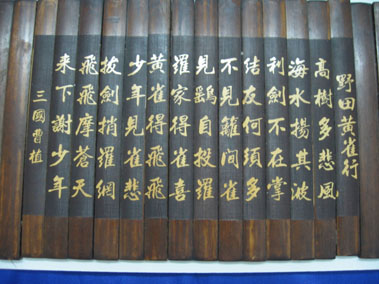 野田黃雀行
高樹多悲風
海水揚其波
利劍不在掌
結友何須多
不見籬間雀
見鷂自投羅
羅家得雀喜
少年見雀悲
拔劍捎羅網
黃雀得飛飛
飛飛摩蒼天
来下謝少年
三國曹植